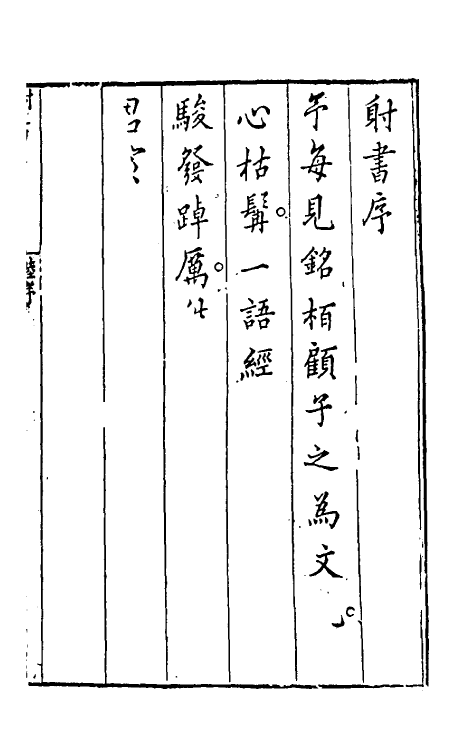 射書序
予每見銘栢顧子之為文
心枯髯一語經
駿發踔厲